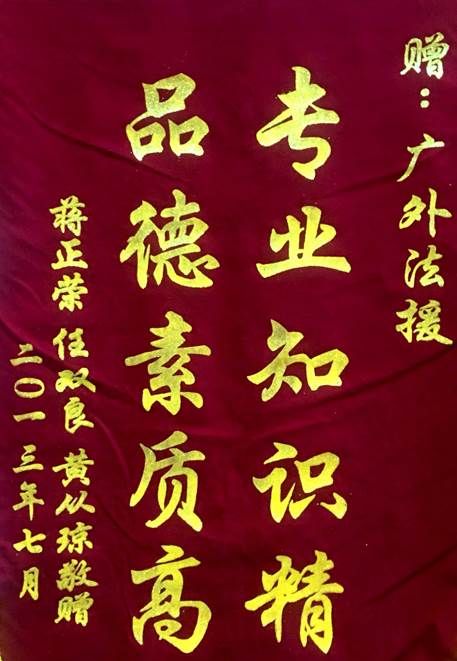 赠：广外法援
专业知识精
品德素质高
蒋正荣 任双良 黄似琼敬赠
二〇一三年七月